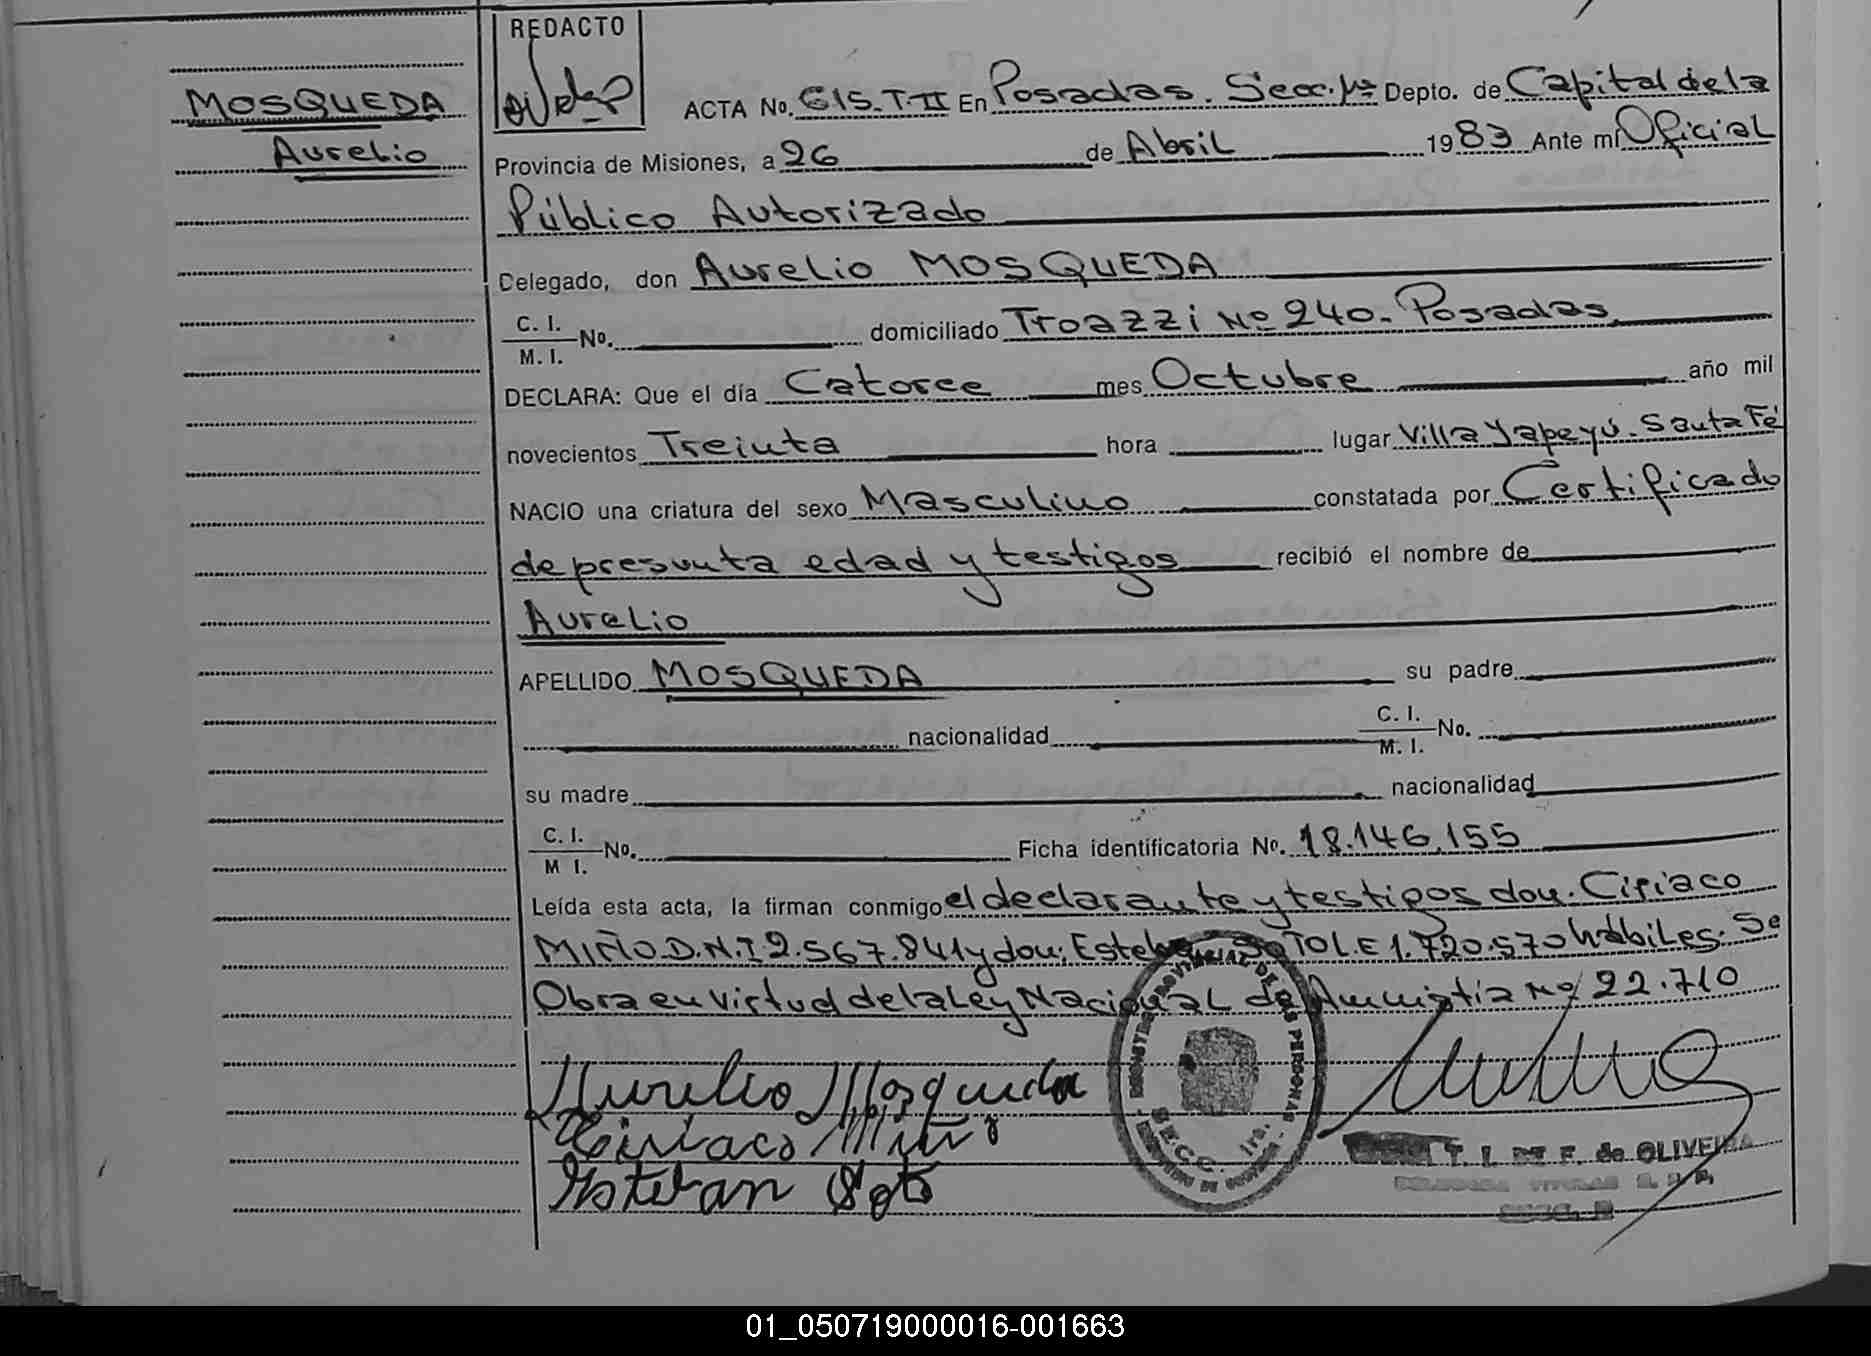 REDACTO
MOSQUEDA
Aurelio
ACTA No. 615. T-II En Posadas. Secc. 1ª Depto. de Capital de la
Provincia de Misiones, a 26 de Abril 1983 Ante mí Oficial
Público Autorizado
Delegado, don Aurelio MOSQUEDA
C. I.
M. I. No. domiciliado Troazzi Nº 240. Posadas
DECLARA: Que el día Catorce mes Octubre año mil
novecientos Treinta hora lugar Villa Yapeyú. Santa Fé
NACIO una criatura del sexo Masculino constatada por Certificado
de presunta edad y testigos recibió el nombre de
Aurelio
APELLIDO MOSQUEDA su padre
nacionalidad C. I.
M. I. No.
su madre nacionalidad
C. I.
M I. No. Ficha identificatoria No. 18.146.155
Leída esta acta, la firman conmigo el declarante y testigos don. Ciriaco
MIÑO D.N.I 2.567.841 y don: Esteban SOTO L.E 1.720.570 hábiles. Se
Obra en virtud de la Ley Nacional de Amnistia Nº 22.710
Aurelio Mosqueda
Ciriaco Miño
Esteban Soto
REGISTRO PROVINCIAL DE LAS PERSONAS
SECC. 1ra.
T. I. DE F. de OLIVEIRA
DELEGADA TITULAR
01_050719000016-001663